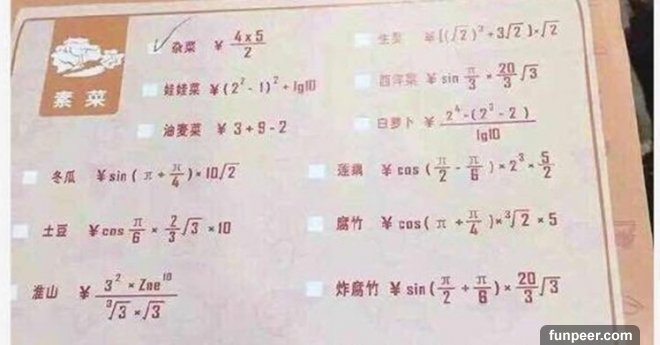 素菜
杂菜 ¥ 4×5/2
生菜 ¥ [(√2)³+3√2]×√2
娃娃菜 ¥(2²-1)²+lg10
西洋菜 ¥ sin π/3 × 20/3 √3
油麦菜 ¥ 3+9-2
白萝卜 ¥ 2⁴-(2³-2)/lg10
冬瓜 ¥sin(π+π/4)×10√2
莲藕 ¥cos(π/2-π/6)×2³×5/2
土豆 ¥cos π/6 × 2/3 √3 ×10
腐竹 ¥cos(π+π/4)×³√2×5
淮山 ¥ 3²×Zne¹⁰/³√3×√3
炸腐竹 ¥ sin(π/2+π/6)×20/3 √3
funpeer.com